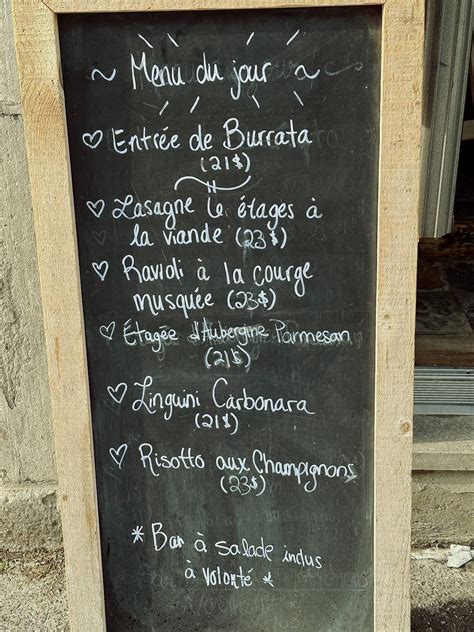 ~ Menu du jour ~
♡ Entrée de Burrata
(21$)
♡ Lasagne 6 étages à
la viande (23$)
♡ Ravioli à la courge
musquée (23$)
♡ Étagée d'Aubergine Parmesan
(21$)
♡ Linguini Carbonara
(21$)
♡ Risotto aux Champignons
(23$)
* Bar à salade inclus
à volonté *